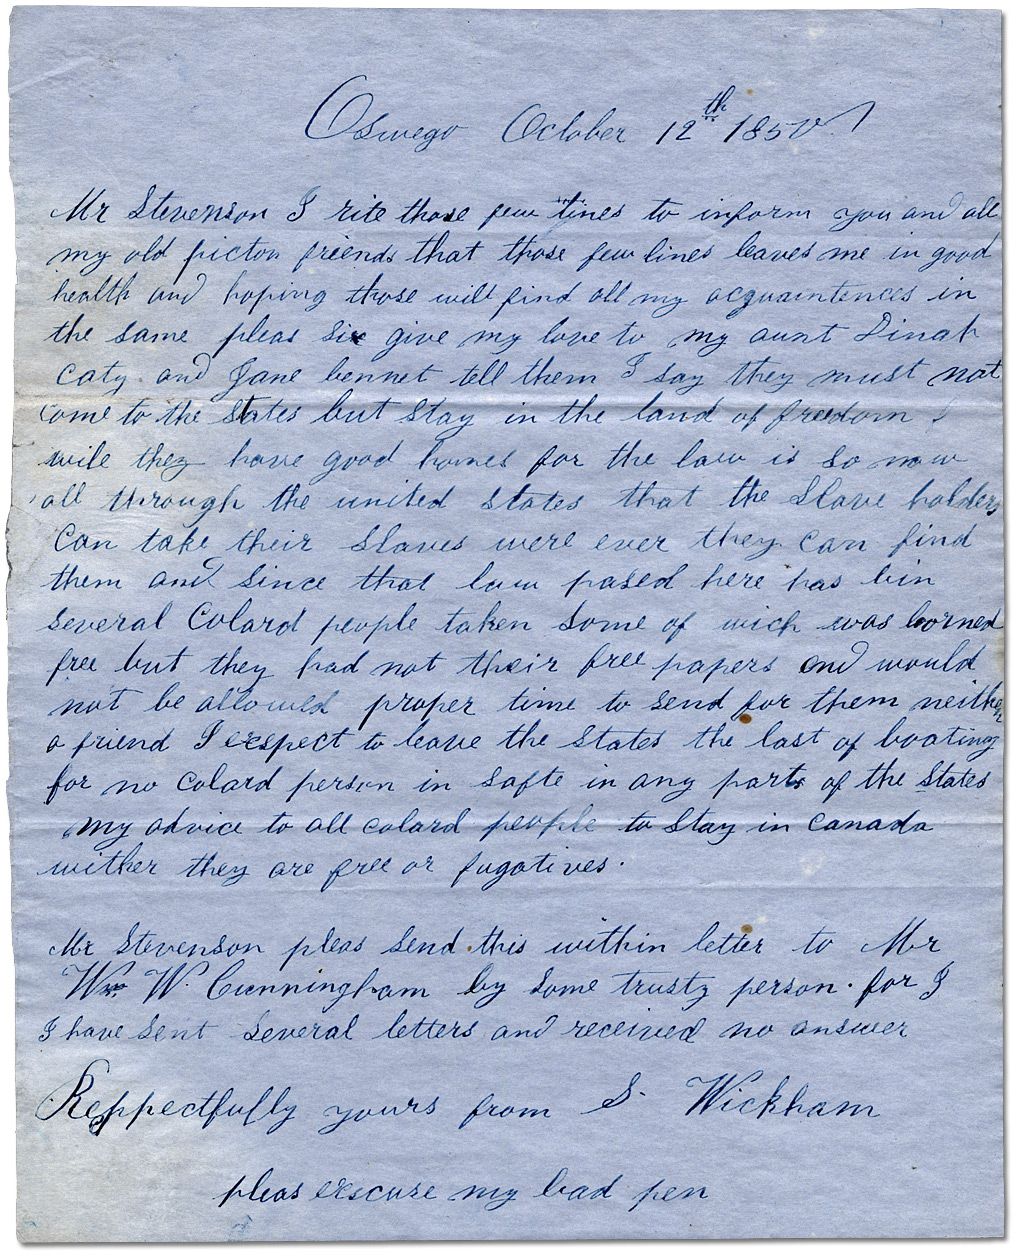 Oswego October 12th 1850
Mr Stevenson I rite those few lines to inform you and all
my old picton friends that those few lines leaves me in good
health and hoping those will find all my acquaintences in
the same pleas sir give my love to my aunt Dinah
Caty and Jane bennet tell them I say they must not
come to the States but stay in the land of freedom
wile they have good homes for the law is so now
all through the united States that the Slave holders
Can take their Slaves were ever they can find
them and since that law pased here has bin
several Colard people taken some of wich was borned
free but they had not their free papers and would
not be allowed proper time to send for them neither
a friend I exspect to leave the States the last of boating
for no Colard person in safte in any parts of the States
My advice to all colard people to stay in Canada
wither they are free or fugatives.
Mr Stevenson pleas send this within letter to Mr
Wm W. Cunningham by some trusty person. for I
I have sent several letters and received no answer
Reppectfully yours from S. Wickham
pleas exscuse my bad pen